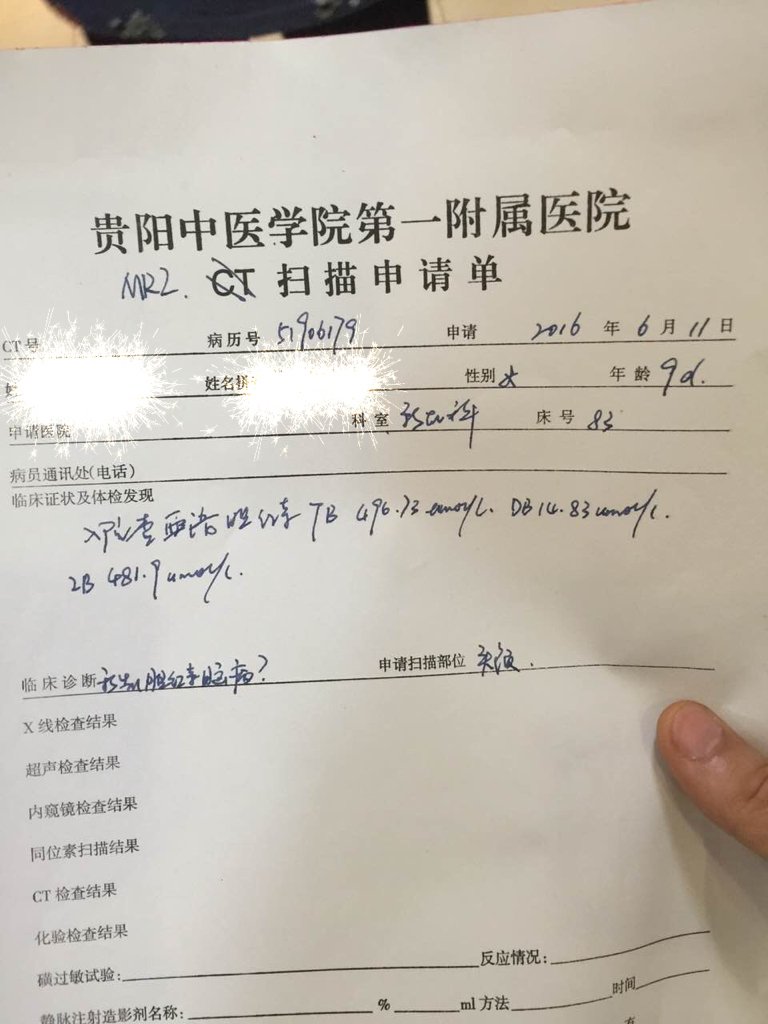 贵阳中医学院第一附属医院
MRI. CT 扫描申请单
CT号 病历号 51906179 申请 2016 年 6 月 11 日
姓名 性别 女 年龄 9d.
申请医院 科室 新生儿科 床号 83
病员通讯处(电话)
临床证状及体检发现
胆红素 TB 496.73 umol/L. DB 14.83 umol/L.
IB 481.9 umol/L.
临床诊断 新生儿胆红素脑病? 申请扫描部位 头颅.
X线检查结果
超声检查结果
内窥镜检查结果
同位素扫描结果
CT 检查结果
化验检查结果
碘过敏试验: 反应情况:
静脉注射造影剂名称: % ml 方法 时间
有